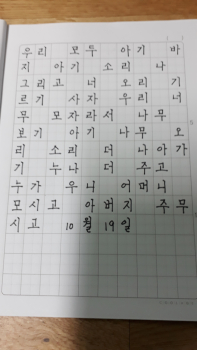 우리 모두 아기 바
지 아기 소리 나
그리고 너 오리 기
르기 사자 우리 너
무 모자라서 나무
보기 아기 나무 오
리 소리 더 나아가
기 누나 더 주고
누가 우니 어머니
모시고 아버지 주무
시고 10월 19일